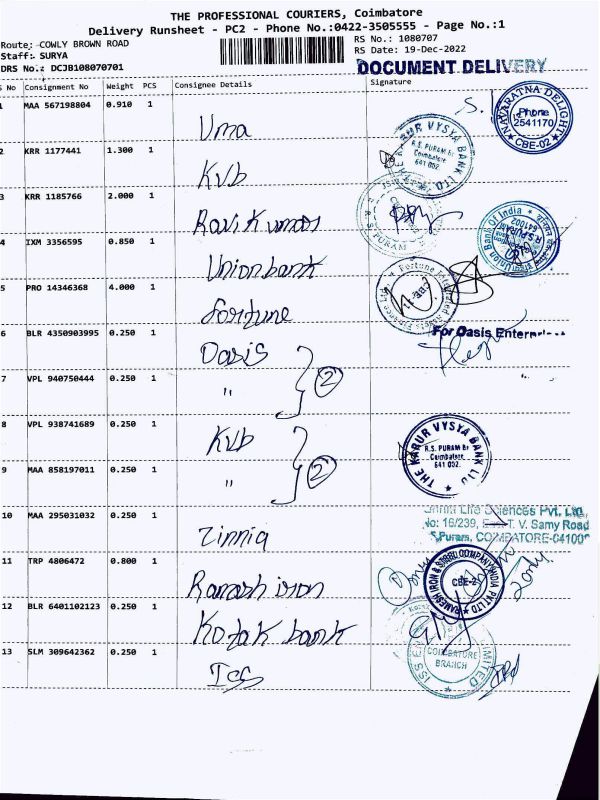 THE PROFESSIONAL COURIERS, Coimbatore
Delivery Runsheet - PC2 - Phone No.:0422-3505555 - Page No.:1
Route; COWLY BROWN ROAD
RS No.: 1080707
Staff: SURYA
RS Date: 19-Dec-2022
DRS No.: DCJB108070701
DOCUMENT DELIVERY
No Consignment No Weight PCS Consignee Details Signature
MAA 567198804 0.910 1 Uma
S.
NAVARATNA DELIGHT
Phone
2541170
CBE-02
2 KRR 1177441 1.300 1 KVB
KARUR VYSYA BANK LTD
R.S. PURAM Br
Coimbatore
641 002
3 KRR 1185766 2.000 1 Ravi Kumar
R S PURAM
4 IXM 3356595 0.850 1 Union bank
Union Bank of India
R S PURAM
641002
5 PRO 14346368 4.000 1 fortune
Fortune
6 BLR 4350903995 0.250 1 Oasis
For Oasis
7 VPL 940750444 0.250 1 " } 2
8 VPL 938741689 0.250 1 KVB
THE KARUR VYSYA BANK LTD
R.S. PURAM Br
Coimbatore
641 002.
9 MAA 858197011 0.250 1 " } 2
10 MAA 295031032 0.250 1 Zinnia
Life Sciences Pvt. Ltd,
No: 16/239, T. V. Samy Road
S.Puram, COIMBATORE-641002
11 TRP 4806472 0.800 1 Ramesh iron
RAMESH IRON & COMPANY INDIA PVT LTD
CBE-2
12 BLR 6401102123 0.250 1 Kotak bank
13 SLM 309642362 0.250 1 Iss
COIMBATORE
BRANCH
LIMITED